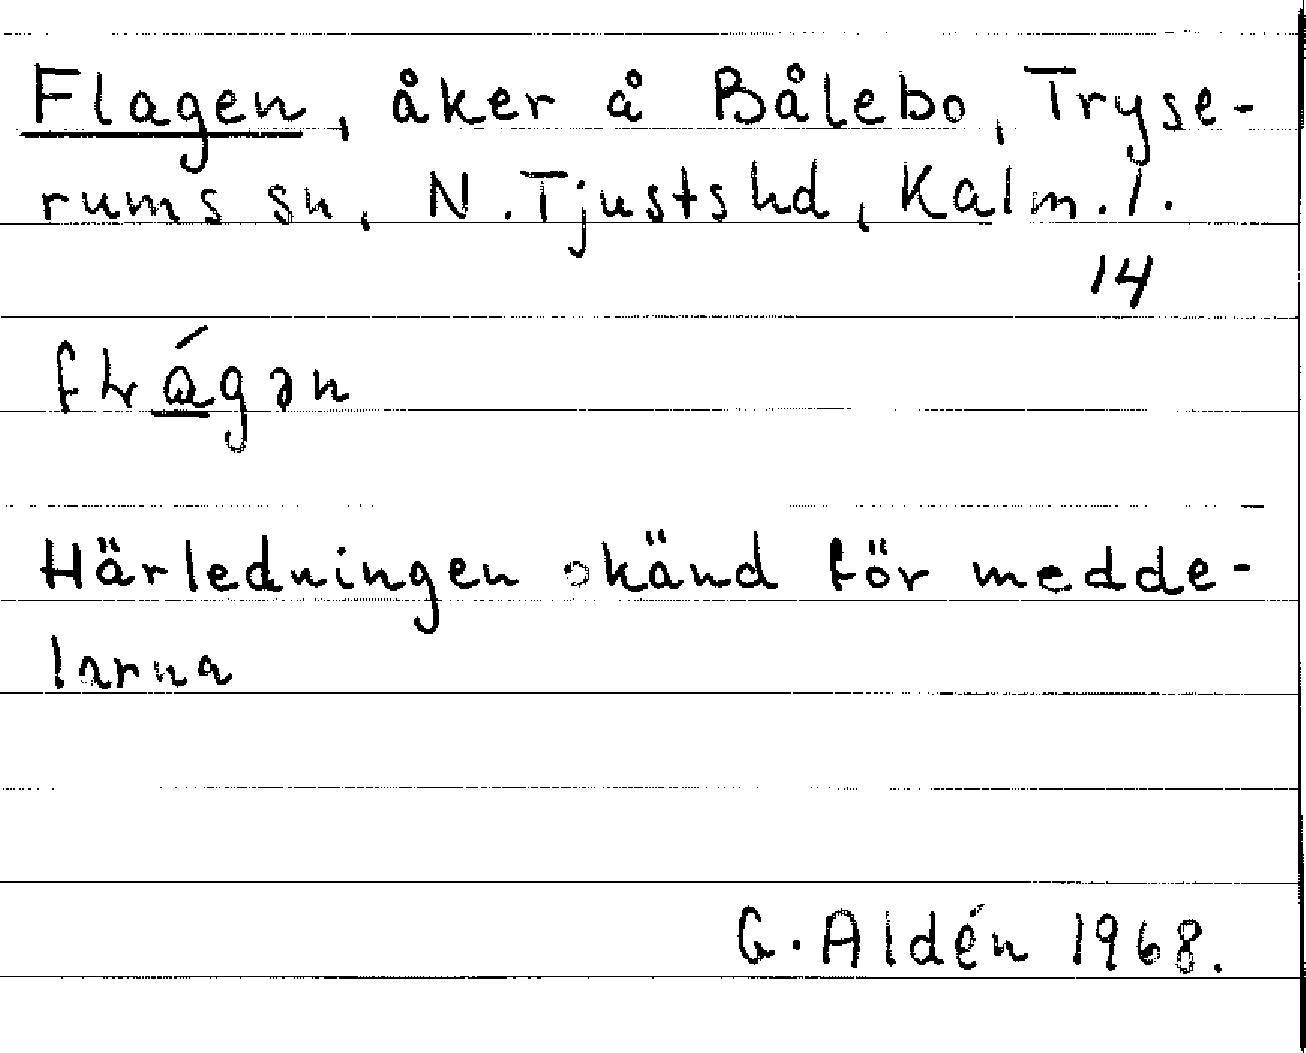 Flagen, åker å Bålebo, Tryse-
rums sn, N. Tjustshd, Kalm. l.
14
Härledningen okänd för medde-
larna
G. Aldén 1968.